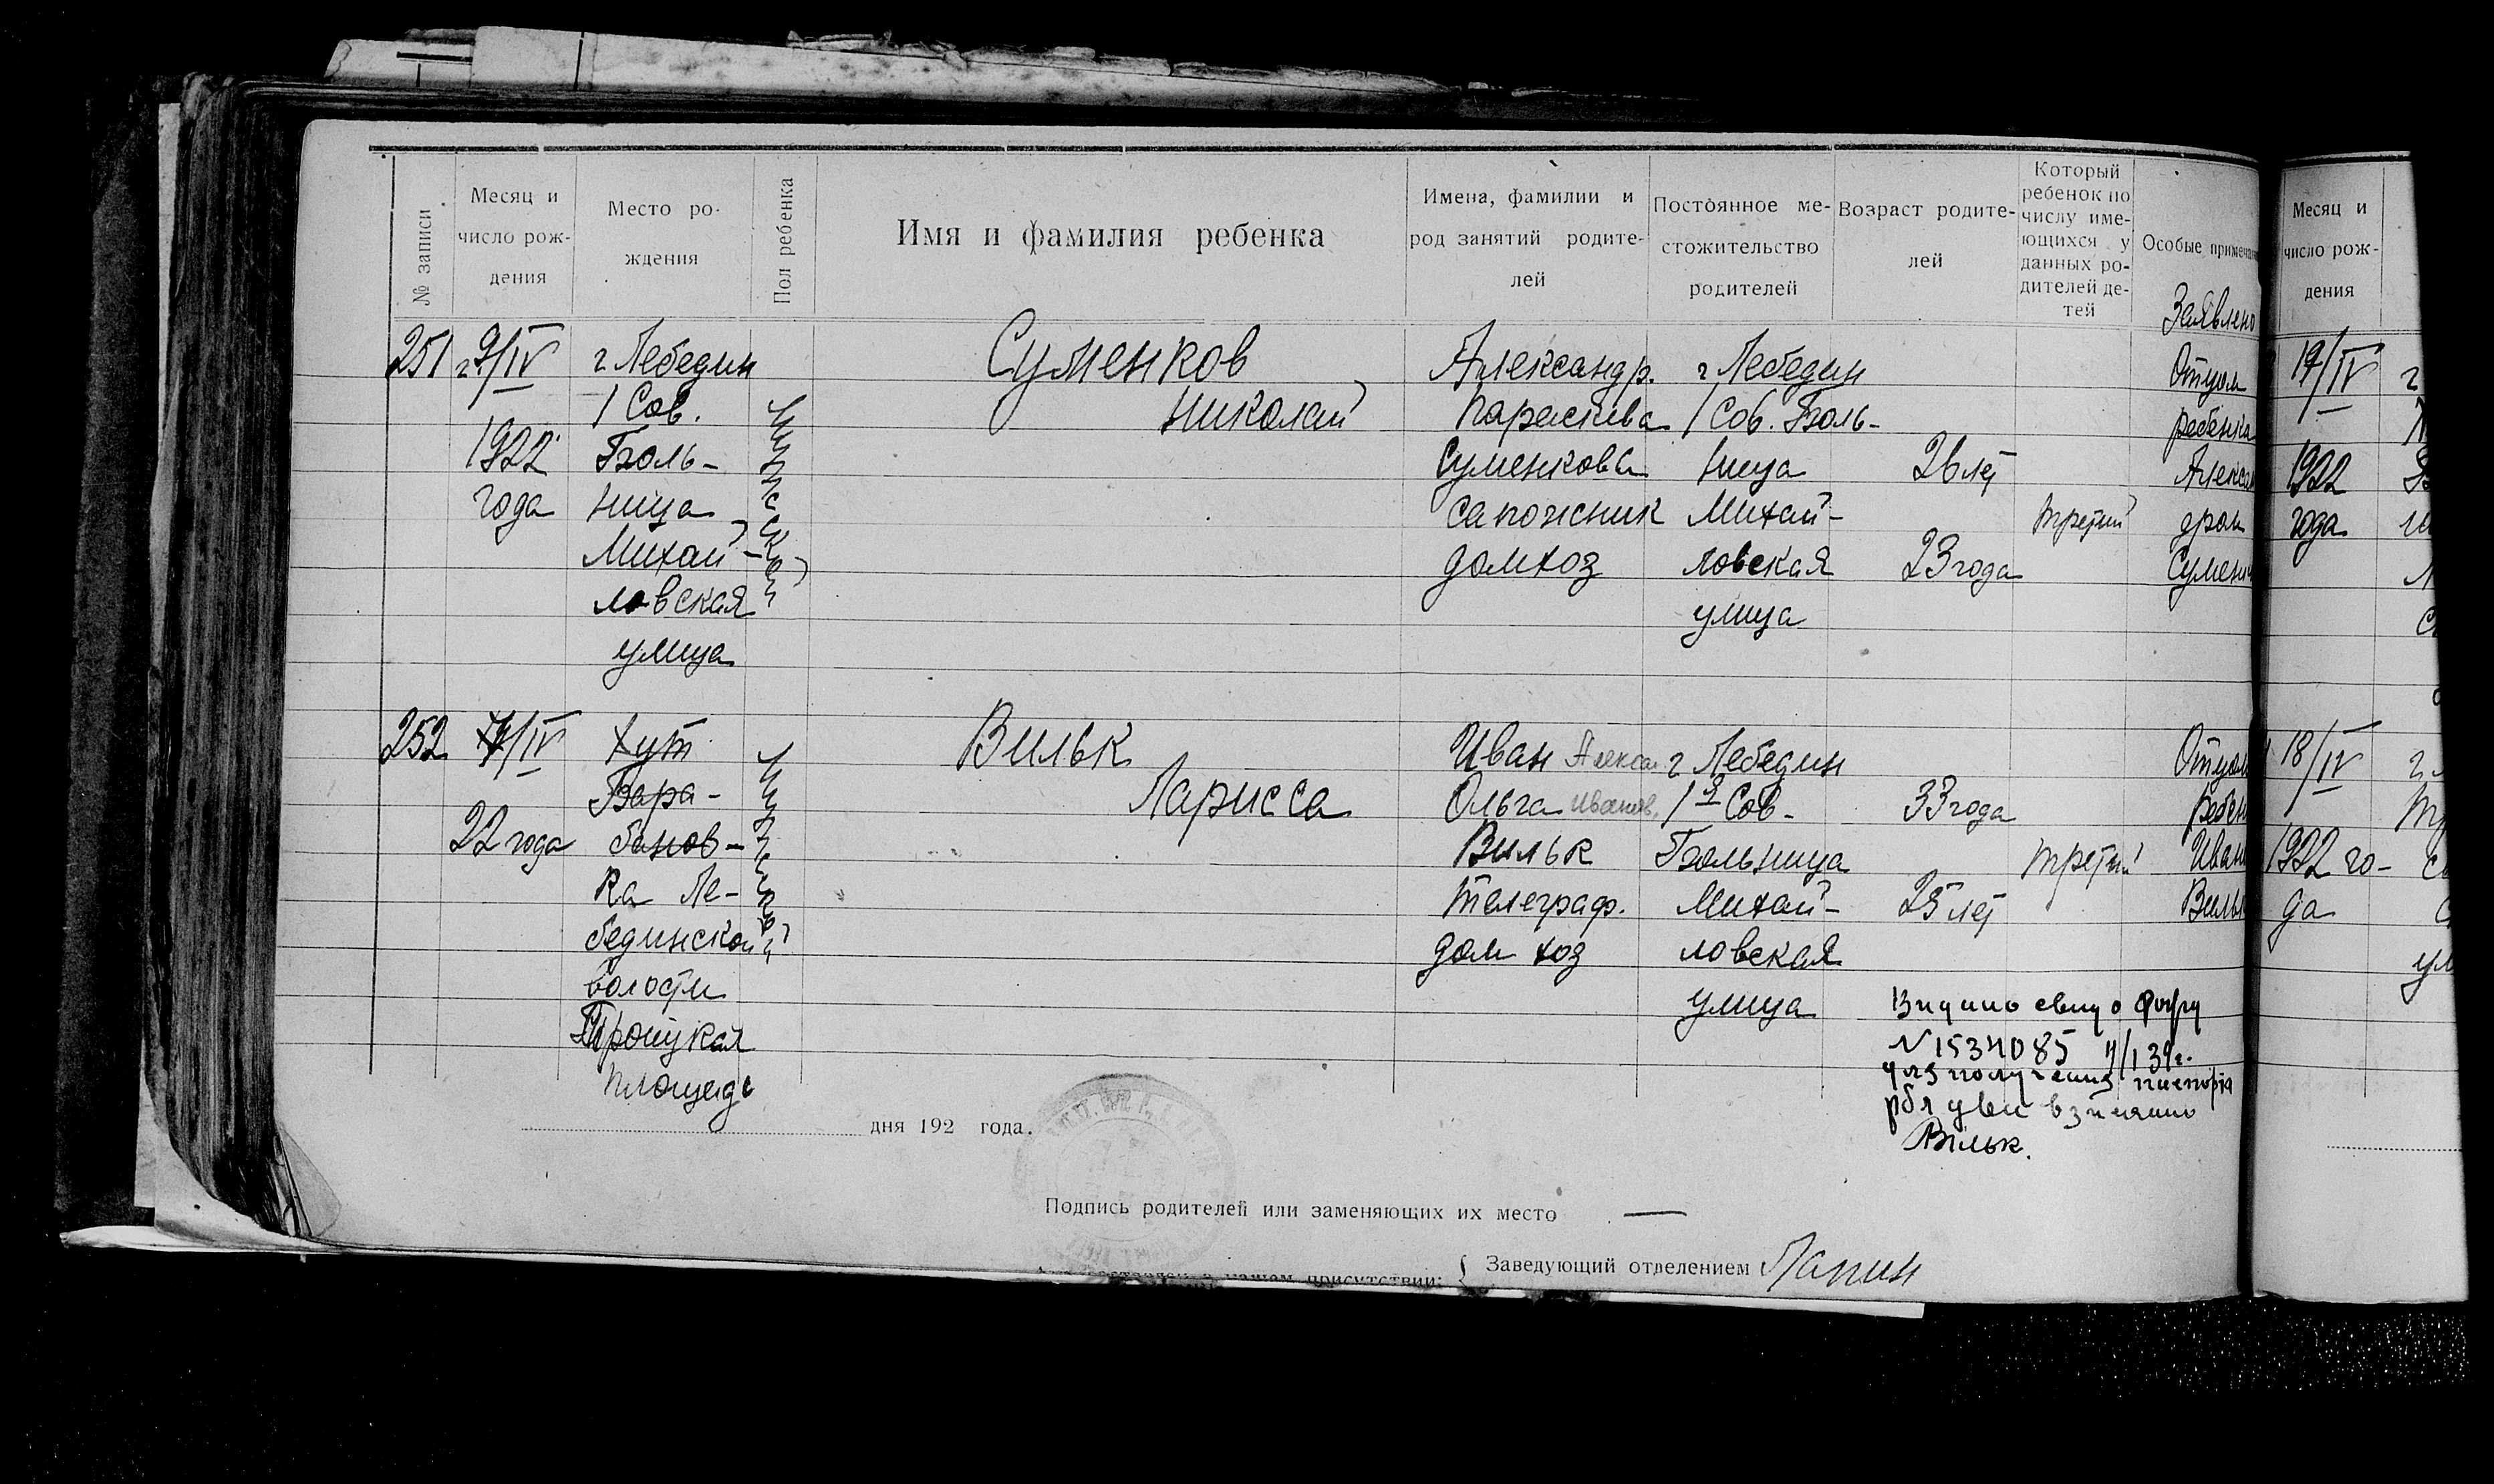 № записи
Месяц и
число рож-
дения
Место ро-
ждения
Пол ребенка
Имя и фамилия ребенка
Имена, фамилии и
род занятий родите-
лей
Постоянное ме-
стожительство
родителей
Возраст родите-
лей
Который
ребенок по
числу име-
ющихся у
данных ро-
дителей де-
тей
Особые примечан
Заявлено
251
/IV
1922
года
г Лебедин
1 Сов.
Боль-
ница
Михай-
ловская
улица
Суменков
Николай
Александр.
Параскева
Суменкова
сапожник
домхоз
г Лебедин
1 Сов. Боль-
ница
Михай-
ловская
улица
26 лет
23 года
третий
Отцом
ребенка
Алексан
дром
Сумен
252
/IV
22 года
Хут
Бара-
банов-
ка Ле-
бединской
волости
Троицкая
площадь
Женский
Вильк
Ларисса
Иван Алексан
Ольга Иванов.
Вильк
телеграф.
дом хоз
г Лебедин
1я Сов-
Больница
Михай-
ловская
улица
33 года
25 лет
третий
Отцом
Ребен
Иван
Вильк
о
№ 1534085
для получения паспорта
Вільк.
дня 192 года.
Подпись родителей или заменяющих их место —
присутствии:
Заведующий отделением Лапин
Месяц и
число рож-
дения
19/IV
1922
года
18/IV
1922 го-
да